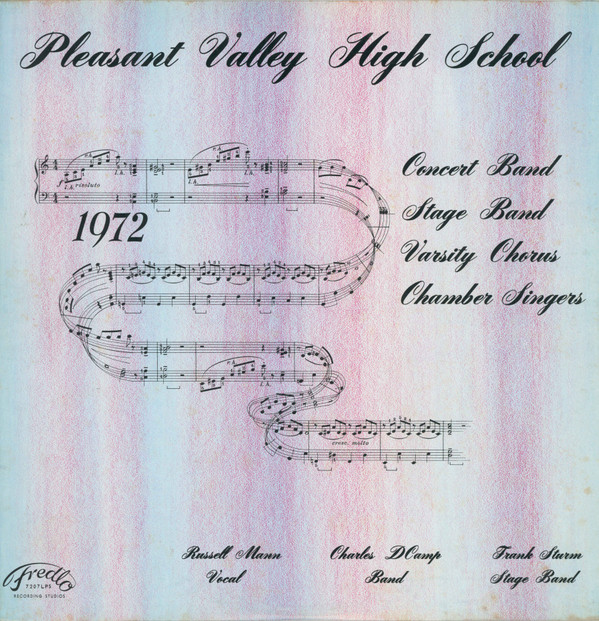 Pleasant Valley High School
r.H.
l.H. risoluto
l.H.
1972
Concert Band
Stage Band
Varsity Chorus
Chamber Singers
cresc. molto
Russell Mann
Vocal
Charles DCamp
Band
Frank Sturm
Stage Band
Fredlo
7207LPS
RECORDING STUDIOS